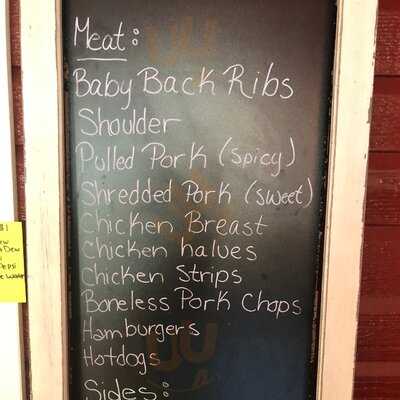 Meat:
Baby Back Ribs
Shoulder
Pulled Pork (spicy)
Shredded Pork (sweet)
Chicken Breast
Chicken halves
Chicken Strips
Boneless Pork Chops
Hamburgers
Hotdogs
Sides:
$1
Dew